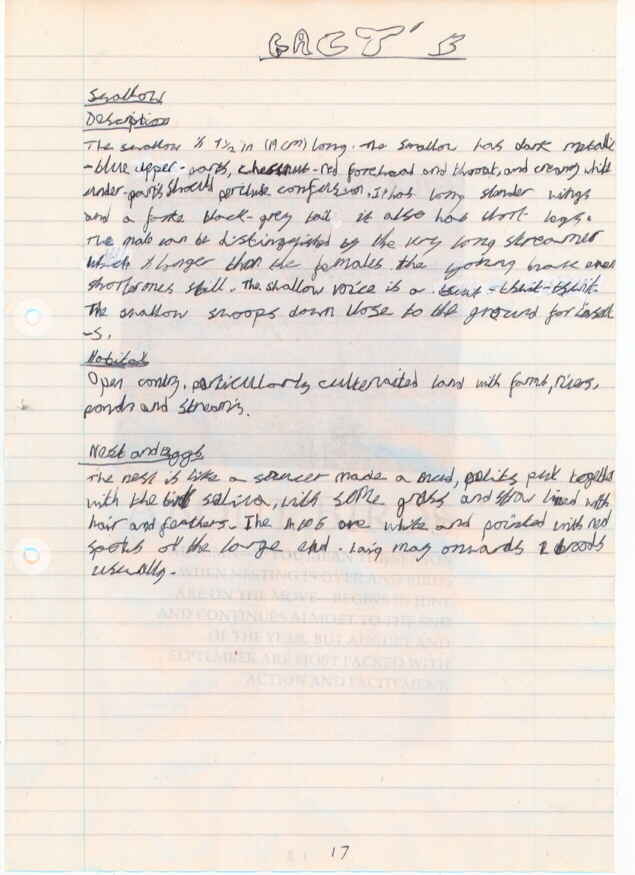 FACT'S
Swallow
Description
The swallow is 7½ in (19 cm) long. The swallow has dark metallic
-blue upper-parts, chestnut-red forehead and throat, and creamy white
under-parts should perclude confusion. It has long slender wings
and a forke black-grey tail it also has short legs.
The male can be distinguished by the very long streamer
which is longer than the females. the young have even
shorter ones still. The swallow voice is a tswit-tswit-tswit.
The swallow swoops down close to the ground for insect
-s.
Habitat
Open contry, particularly cultervated land with farms, rivers,
ponds and streams.
Nest and eggs
The nest is like a soucer made a mud, pelits put together
with the bird saliva, with some grass and straw lined with
hair and feathers. The are white and pointed with red
spots at the large end. Laing may onwards 2 broods
usually.
WHEN NESTING IS OVER AND BIRDS
ARE ON THE MOVE - BEGINS IN JUNE
AND CONTINUES ALMOST TO THE END
OF THE YEAR, BUT AUGUST AND
SEPTEMBER ARE MOST PACKED WITH
ACTION AND EXCITEMENT.
17